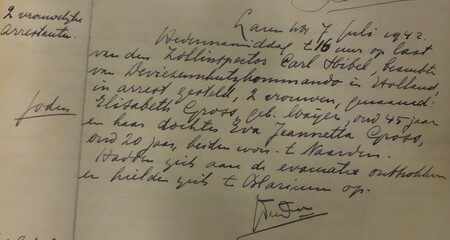 2 vrouwelijke
Arrestanten.
Joden
Laren N.H. 7 Juli 1942.
Hedenmiddag t 16 uur op last
van den Zollinspector Carl Höbel, beambte
van Devizenschutzkommando in Holland,
in arrest gesteld, 2 vrouwen, genaamd:
Elisabeth Gross, geb. oud 45 jaar
en haar dochter Eva Jeannetta Gross,
oud 20 jaar, beiden won. t Naarden.
Hadden zich aan de evacuatie onttrokken
en hielden zich t Blaricum op.